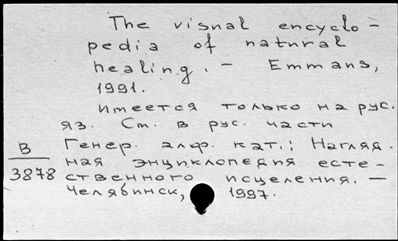 The visual encyclo-
pedia of natural
healing. - Emmans,
1991.
имеется только на рус.
яз. См. в рус. части
Генер. алф. кат.: Нагляд
ная энциклопедия есте-
ственного исцеления. -
Челябинск, 1997.
В
3878